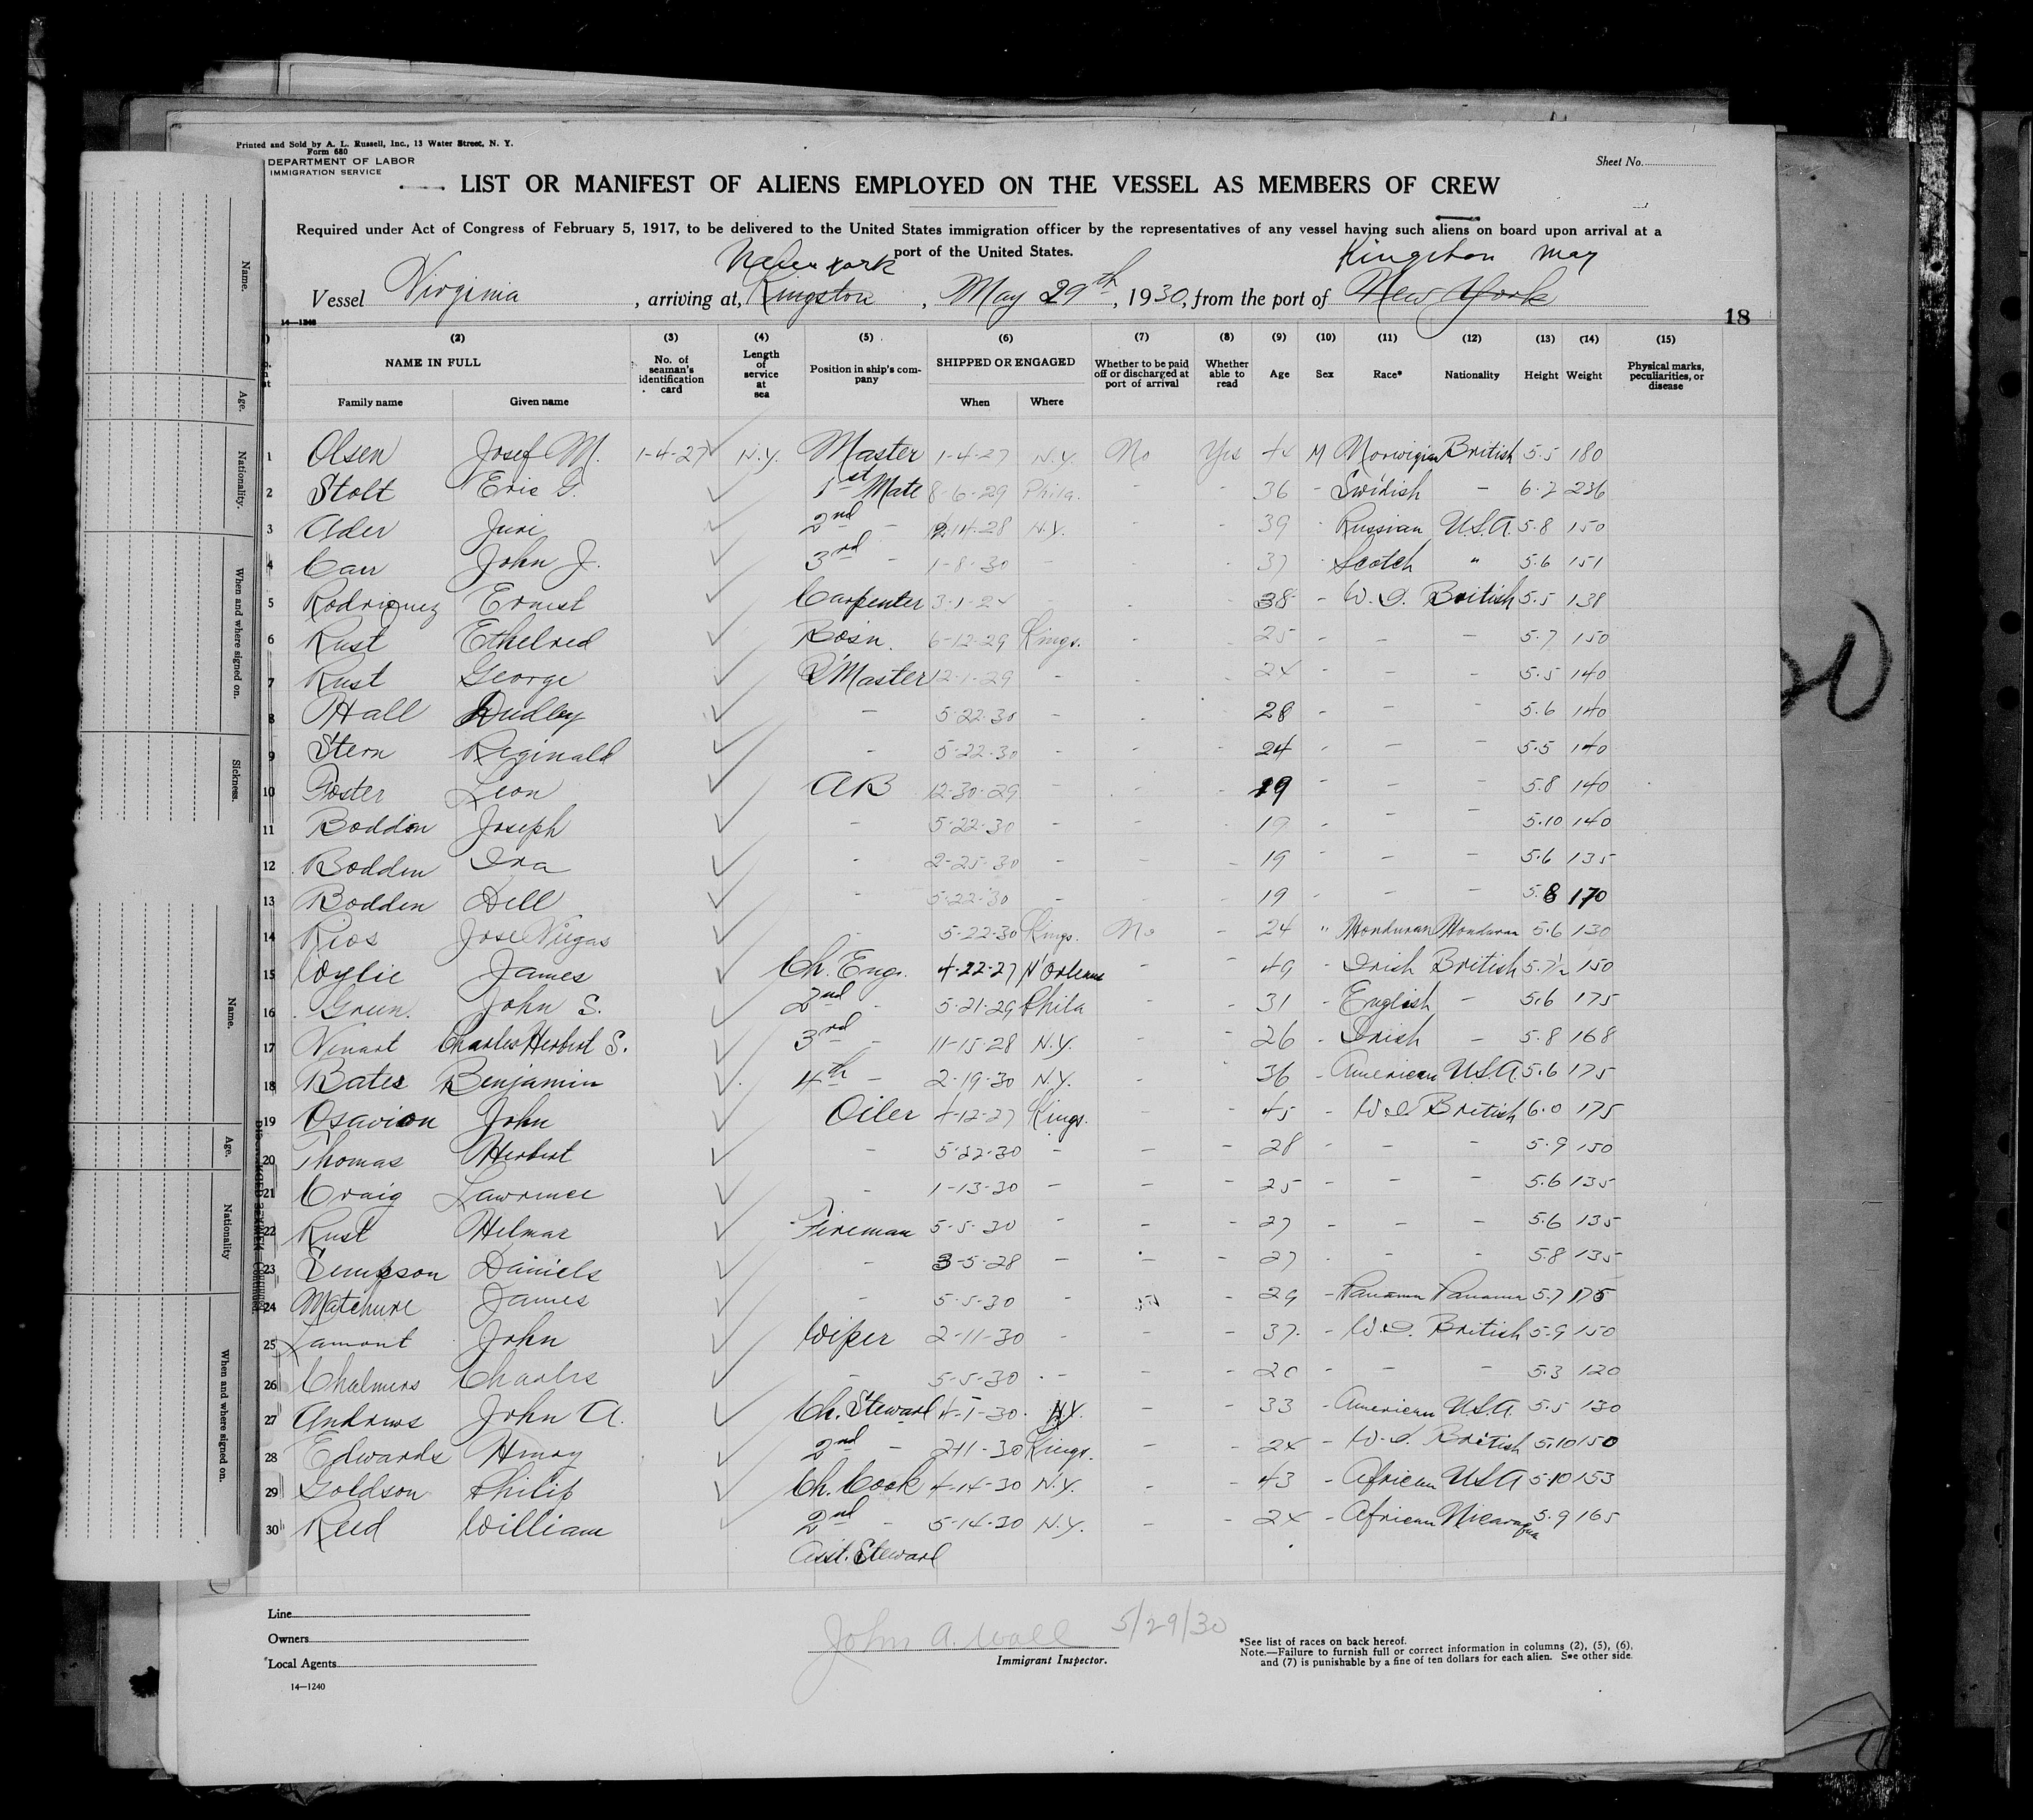 Printed and Sold by A. L. Russell, Inc., 13 Water Street, N. Y.
Form 680
DEPARTMENT OF LABOR
IMMIGRATION SERVICE
Sheet No.
LIST OR MANIFEST OF ALIENS EMPLOYED ON THE VESSEL AS MEMBERS OF CREW
Required under Act of Congress of February 5, 1917, to be delivered to the United States immigration officer by the representatives of any vessel having such aliens on board upon arrival at a
port of the United States.
New York Kingston May
Vessel Virginia, arriving at, Kingston, May 29th, 1930, from the port of New York
14—1240
18
(2) (3) (4) (5) (6) (7) (8) (9) (10) (11) (12) (13) (14) (15)
NAME IN FULL No. of seaman's identification card Length of service at sea Position in ship's company SHIPPED OR ENGAGED Whether to be paid off or discharged at port of arrival Whether able to read Age Sex Race* Nationality Height Weight Physical marks, peculiarities, or disease
Family name Given name When Where
1 Olsen Josef M. 1-4-27 N.Y. Master 1-4-27 N.Y. No Yes 44 M Norwigian British 5.5 180
2 Stolt Eric G. 1st Mate 8-6-29 Phila. - - 36 - Swidish - 6.2 236
3 Ader Juri 2nd - 14-28 N.Y. - - 39 - Russian U.S.A. 5.8 150
4 Carr John J. 3rd - 1-8-30 - - - 37 - Scotch " 5.6 151
5 Rodriquez Ernest Carpenter 3-1-24 - - - 38 - W.I. British 5.5 138
6 Rust Ethelred Bosn. 6-12-29 Kings. - - 25 - - - 5.7 150
7 Rust George Q'Master 12-1-29 - - - 24 - - - 5.5 140
8 Hall Dudley - 5-22-30 - - - 28 - - - 5.6 140
9 Stern Reginald - 5-22-30 - - - 24 - - - 5.5 140
10 Foster Leon AB 12-30-29 - - - 19 - - - 5.8 140
11 Bodden Joseph - 5-22-30 - - - 19 - - - 5.10 140
12 Bodden Ira - 2-25-30 - - - 19 - - - 5.6 135
13 Bodden Dell - 5-22-30 - - - 19 - - - 5.8 170
14 Rios Jose - 5-22-30 Kings. No - 24 " Honduran Honduran 5.6 130
15 Wylie James Ch. Engr. 4-22-27 N'Orleans - - 49 - Irish British 5.7½ 150
16 Green John S. 2nd - 5-21-29 Phila - - 31 - English - 5.6 175
17 Charles Herbert S. 3rd - 11-15-28 N.Y. - - 26 - Irish - 5.8 168
18 Bates Benjamin 4th - 2-19-30 N.Y. - - 36 - American U.S.A. 5.6 175
19 Osavion John Oiler 4-12-27 Kings. - - 45 - W.I. British 6.0 175
20 Thomas Herbert - 5-22-30 - - - 28 - - - 5.9 150
21 Craig Lawrence - 1-13-30 - - - 25 - - - 5.6 135
22 Rust Helmar Fireman 5-5-30 - - - 27 - - - 5.6 135
23 Sempson Daniels - 3-5-28 - - - 27 - - - 5.8 135
24 Matchure James - 5-5-30 - - 29 - Panama Panama 5.7 175
25 Lamont John Wiper 2-11-30 - - - 37 - W.I. British 5.9 150
26 Chalmers Charles - 5-5-30 - - - 20 - - - 5.3 120
27 Andrews John A. Ch. Steward 4-1-30 N.Y. - - 33 - American U.S.A. 5.5 130
28 Edwards Henry 2nd - 2-11-30 Kings. - - 24 - W.I. British 5.10 150
29 Goldson Philip Ch. Cook 4-14-30 N.Y. - - 43 - African U.S.A 5.10 153
30 Reid William 2nd - 5-14-30 N.Y. - - 24 - African Nicaragua 5.9 165
Asst. Steward
Line
Owners
Local Agents
14—1240
John A. Wall 5/29/30
Immigrant Inspector.
*See list of races on back hereof.
Note.—Failure to furnish full or correct information in columns (2), (5), (6),
and (7) is punishable by a fine of ten dollars for each alien. See other side.
Name.
Age.
Nationality.
When and where signed on.
Sickness.
Name.
Age.
Nationality
When and where signed on.